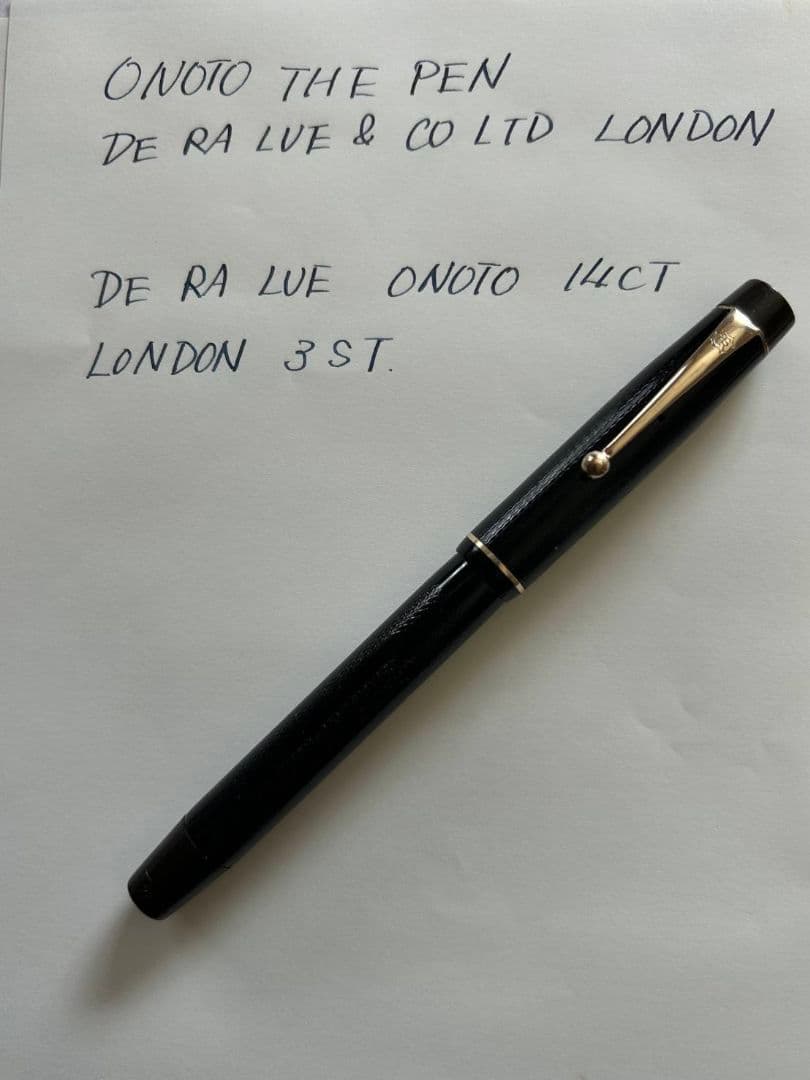 ONOTO THE PEN
DE RA LUE & CO LTD LONDON
DE RA LUE ONOTO 14CT
LONDON 3 ST.